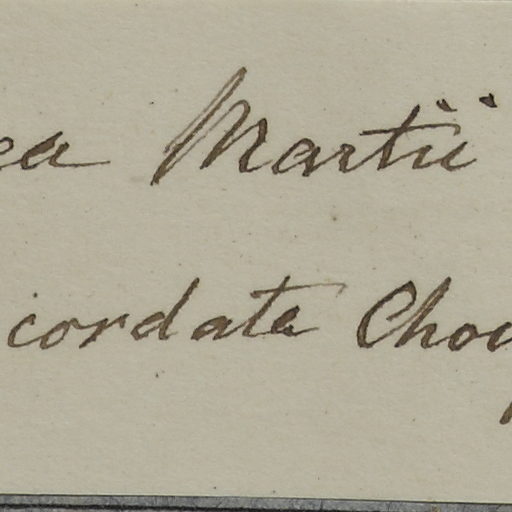 ea Martii
cordata Choi